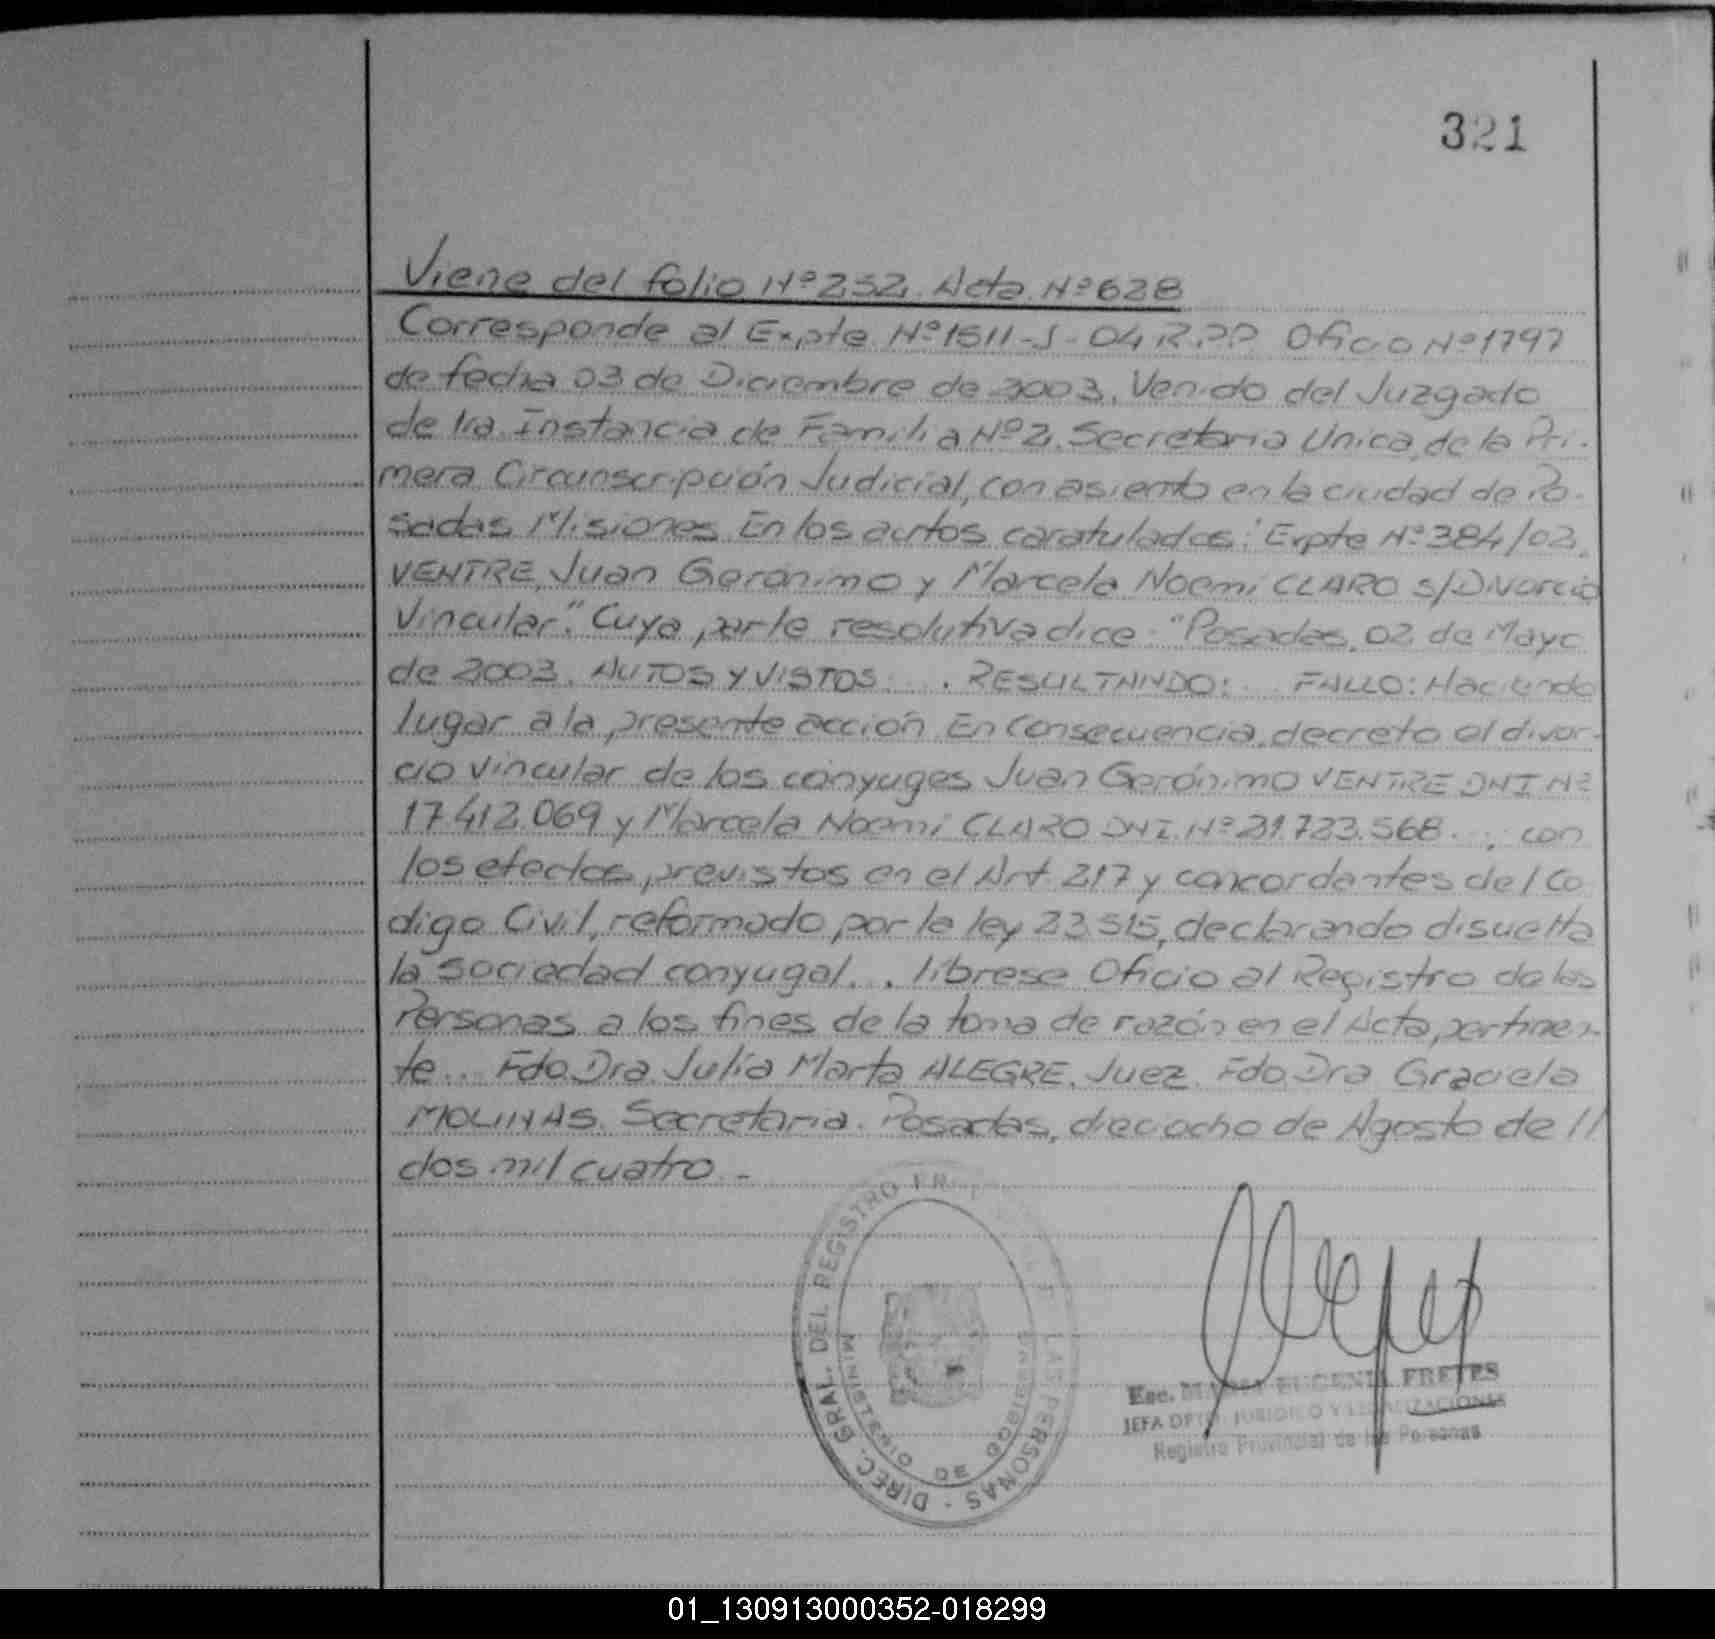 321
Viene del folio Nº 252. Acta Nº 628
Corresponde al Expte. Nº 1511-J-04 R.P.P. Oficio Nº 1797
de fecha 03 de Diciembre de 2003. Venido del Juzgado
de 1ra. Instancia de Familia Nº 2, Secretaria Unica, de la Pri-
mera Circunscripción Judicial, con asiento en la ciudad de Po-
sadas Misiones. En los autos caratulados: "Expte Nº 384/02.
VENTRE, Juan Gerónimo y Marcela Noemi CLARO s/Divorcio
Vincular". Cuya parte resolutiva dice: "Posadas, 02 de Mayo
de 2003. AUTOS Y VISTOS: . . RESULTANDO: . . FALLO: Haciendo
lugar a la presente acción. En Consecuencia, decreto el divor-
cio vincular de los cónyuges Juan Gerónimo VENTRE DNI Nº
17.412.069 y Marcela Noemi CLARO DNI. Nº 21.723.568 ..; con
los efectos previstos en el Art. 217 y concordantes del Co
digo Civil, reformado por la ley 23.515, declarando disuelta
la sociedad conyugal... librese Oficio al Registro de las
Personas a los fines de la toma de razón en el Acta pertinen-
te... Fdo. Dra. Julia Marta ALEGRE. Juez. Fdo. Dra Graciela
MOLINAS. Secretaria. Posadas, dieciocho de Agosto de //
dos mil cuatro.-
DIREC. GRAL. DEL REGISTRO LAS PERSONAS -
MINISTERIO DE GOBIERNO
Esc. MARIA EUGENIA FRETES
JEFA DPTO. JURIDICO Y LEGALIZACIONES
Registro Provincial de las Personas
01_130913000352-018299